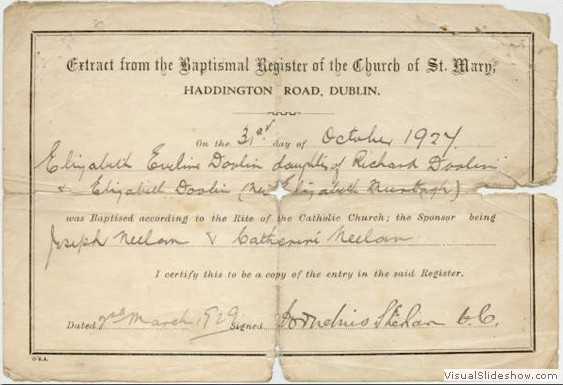 Extract from the Baptismal Register of the Church of St. Mary,
HADDINGTON ROAD, DUBLIN.
On the 31st day of October 1927.
Elizabeth Eveline Doolin daughter of Richard Doolin
& Elizabeth Doolin (nee Elizabeth Murtagh)
was Baptised according to the Rite of the Catholic Church; the Sponsor being
Joseph Neelan & Catherine Neelan
I certify this to be a copy of the entry in the said Register.
Dated 2nd March 1929 Signed Cornelius C.C.
VisualSlideshow.com